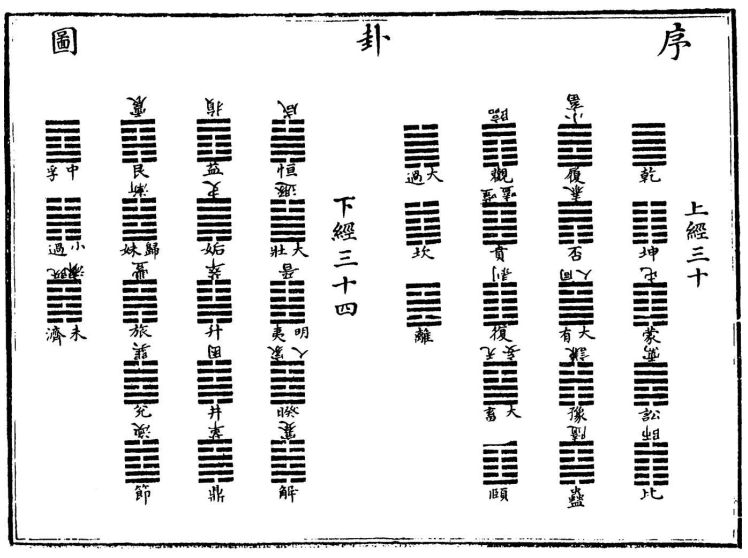 序卦圖
上經三十
乾
坤
屯
蒙
需
訟
師
比
小畜
履
泰
否
同人
大有
謙
豫
隨
蠱
臨
觀
噬嗑
賁
剝
復
无妄
大畜
頤
大過
坎
離
下經三十四
咸
恒
遯
大壯
晉
明夷
家人
睽
蹇
解
損
益
夬
姤
萃
升
困
井
革
鼎
震
艮
漸
歸妹
豐
旅
巽
兌
渙
節
中孚
小過
既濟
未濟